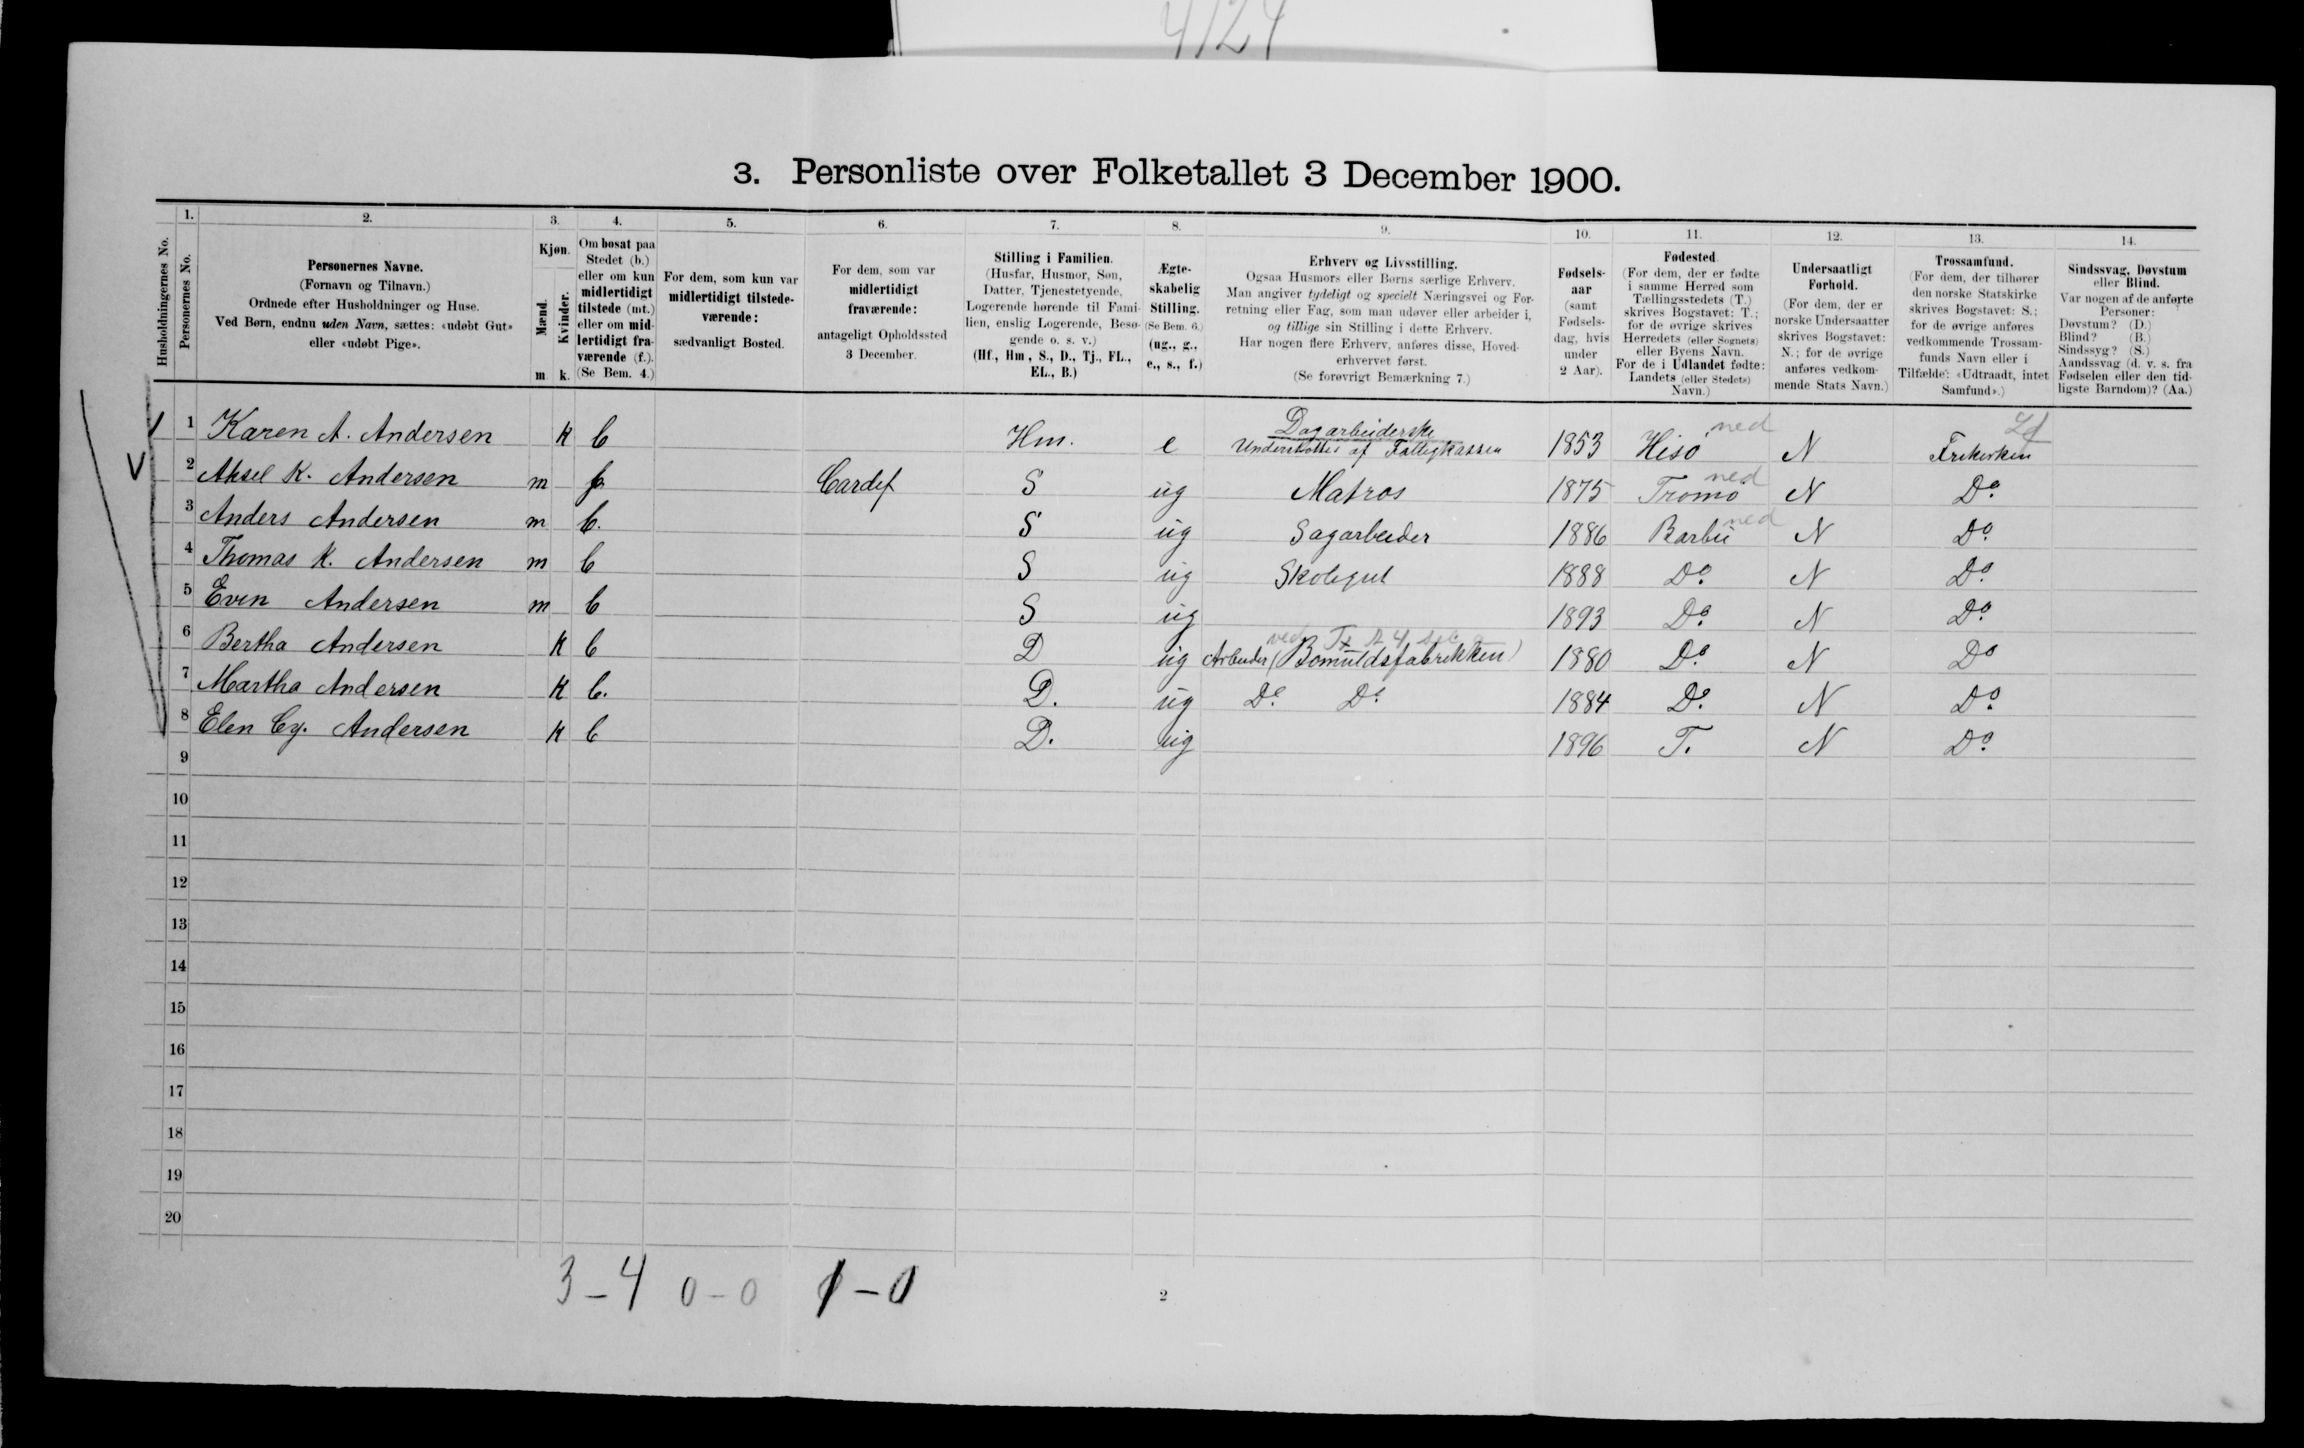 4124
3. Personliste over Folketallet 3 December 1900.
1. 2. 3. 4. 5. 6. 7. 8. 9. 10. 11. 12. 13. 14.
Husholdningernes No.
Personernes No.
Personernes Navne.
(Fornavn og Tilnavn.)
Ordnede efter Husholdninger og Huse.
Ved Børn, endnu uden Navn, sættes: «udøbt Gut»
eller «udøbt Pige».
Kjøn.
Mænd.
Kvinder.
m k.
Om bosat paa
Stedet (b.)
eller om kun
midlertidigt
tilstede (mt.)
eller om mid-
lertidigt fra-
værende (f.).
(Se Bem. 4.)
For dem, som kun var
midlertidigt tilstede-
værende:
sædvanligt Bosted.
For dem, som var
midlertidigt
fraværende:
antageligt Opholdssted
3 December.
Stilling i Familien.
(Husfar, Husmor, Søn,
Datter, Tjenestetyende,
Logerende hørende til Fami-
lien, enslig Logerende, Besø-
gende o. s. v.)
(Hf., Hm., S., D., Tj., FL.,
EL., B.)
Ægte-
skabelig
Stilling.
(Se Bem. 6.)
(ug., g.,
e., s., f.)
Erhverv og Livsstilling.
Ogsaa Husmors eller Børns særlige Erhverv.
Man angiver tydeligt og specielt Næringsvei og For-
retning eller Fag, som man udøver eller arbeider i,
og tillige sin Stilling i dette Erhverv.
Har nogen flere Erhverv, anføres disse, Hoved-
erhvervet først.
(Se forøvrigt Bemærkning 7.)
Fødsels-
aar
(samt
Fødsels-
dag, hvis
under
2 Aar).
Fødested.
(For dem, der er fødte
i samme Herred som
Tællingsstedets (T.)
skrives Bogstavet: T.;
for de øvrige skrives
Herredets (eller Sognets)
eller Byens Navn.
For de i Udlandet fødte:
Landets (eller Stedets)
Navn.)
Undersaatligt
Forhold.
(For dem, der er
norske Undersaatter
skrives Bogstavet:
N.; for de øvrige
anføres vedkom-
mende Stats Navn.)
Trossamfund.
(For dem, der tilhører
den norske Statskirke
skrives Bogstavet: S.;
for de øvrige anføres
vedkommende Trossam-
funds Navn eller i
Tilfælde: «Udtraadt, intet
Samfund».)
Sindssvag, Døvstum
eller Blind.
Var nogen af de anførte
Personer:
Døvstum? (D.)
Blind? (B.)
Sindssyg? (S.)
Aandssvag (d. v. s. fra
Fødselen eller den tid-
ligste Barndom)? (Aa.)
Dagarbeiderske ned
1 1 Karen A. Andersen k b Hm. e Understøttes af Fattigkassen 1853 Hisø N Frikirken
V
2 Aksel K. Andersen m f Cardif S ug Matros 1875 Tromø ned N Do.
3 Anders Andersen m b. S ug Sagarbeider 1886 Barbu ned N Do.
4 Thomas K. Andersen m b S ug Skolegut 1888 Do. N Do.
5 Even Andersen m b S ug 1893 Do. N Do.
ved
6 Bertha Andersen k b D ug Arbeider (Bomuldsfabrikken) 1880 Do. N Do
7 Martha Andersen k b. D. ug Do. Do. 1884 Do. N Do.
8 Elen Cy. Andersen k b D. ug 1896 T. N Do.
9
10
11
12
13
14
15
16
17
18
19
20
3-4 0-0 1-0
2